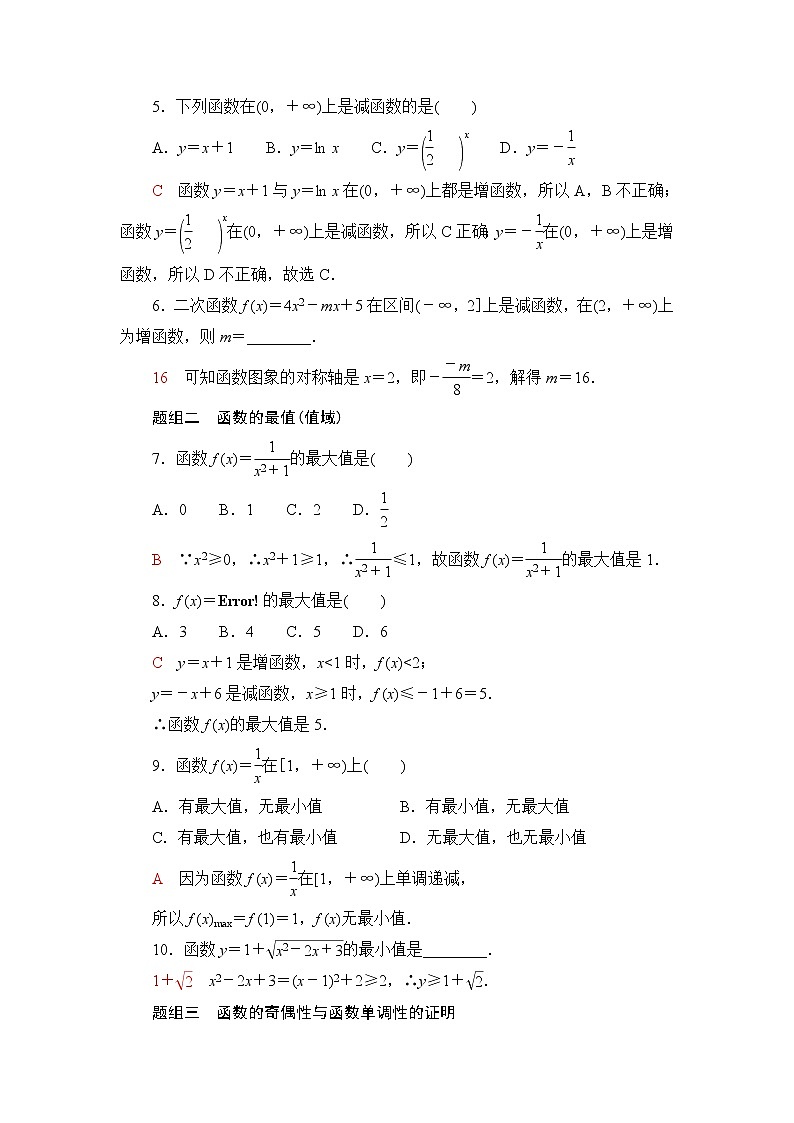 5．下列函数在(0，＋∞)上是减函数的是(　　)
A．y＝x＋1　　B．y＝ln x　　C．y＝(1/2)^x　　D．y＝－1/x
C　函数 y＝x＋1 与 y＝ln x 在(0，＋∞)上都是增函数，所以 A，B 不正确；
函数 y＝(1/2)^x在(0，＋∞)上是减函数，所以 C 正确 y＝－1/x在(0，＋∞)上是增
函数，所以 D 不正确，故选 C．
6．二次函数 f (x)＝4x²－mx＋5 在区间(－∞，2]上是减函数，在(2，＋∞)上
为增函数，则 m＝________．
16　可知函数图象的对称轴是 x＝2，即－(－m)/8＝2，解得 m＝16．
题组二　函数的最值(值域)
7．函数 f (x)＝1/(x²＋1)的最大值是(　　)
A．0　　B．1　　C．2　　D．1/2
B　∵x²≥0，∴x²＋1≥1，∴1/(x²＋1)≤1，故函数 f (x)＝1/(x²＋1)的最大值是 1．
8．f (x)＝Error! 的最大值是(　　)
A．3　　B．4　　C．5　　D．6
C　y＝x＋1 是增函数，x<1 时，f (x)<2；
y＝－x＋6 是减函数，x≥1 时，f (x)≤－1＋6＝5．
∴函数 f (x)的最大值是 5．
9．函数 f (x)＝1/x在[1，＋∞)上(　　)
A．有最大值，无最小值　　B．有最小值，无最大值
C．有最大值，也有最小值　　D．无最大值，也无最小值
A　因为函数 f (x)＝1/x在[1，＋∞)上单调递减，
所以 f (x)max＝f (1)＝1，f (x)无最小值．
10．函数 y＝1＋√(x²－2x＋3)的最小值是________．
1＋√2　x²－2x＋3＝(x－1)²＋2≥2，∴y≥1＋√2．
题组三　函数的奇偶性与函数单调性的证明